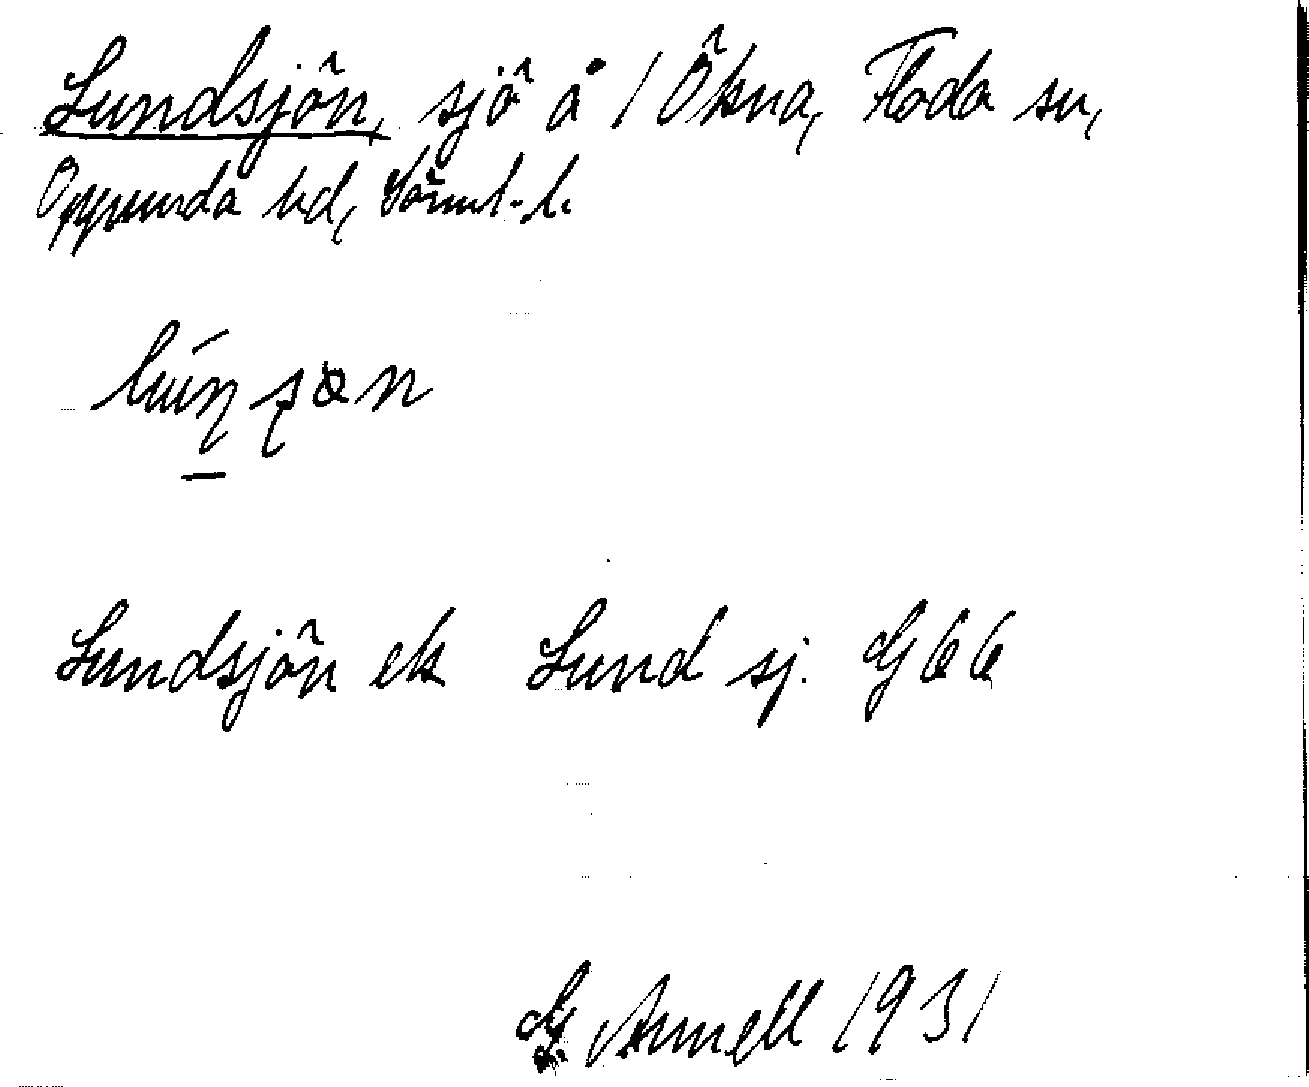 Lundsjön, sjö å 1 Ökna, Floda sn,
Oppunda hd, Sörml. l.
Lundsjön ek Lund sj. G 66
G. Annell 1931